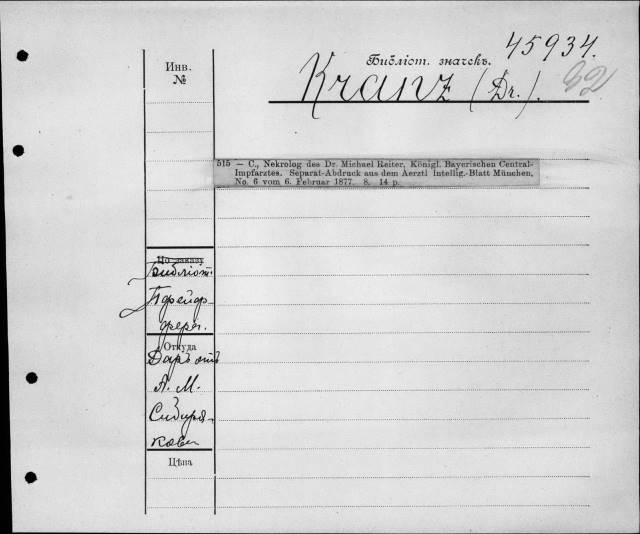 45934.
Библіот. значекъ.
Инв.
№
Kranz (Dr.).
515 — C., Nekrolog des Dr. Michael Reiter, Königl. Bayerischen Central-
Impfarztes. Separat-Abdruck aus dem Aerztl Intellig.-Blatt München,
No. 6 vom 6. Februar 1877. 8. 14 p.
По заказу
Библіот.
Пфейф-
фера.
Откуда
Даръ отъ
А. М.
Сибиря-
кова
Цѣна